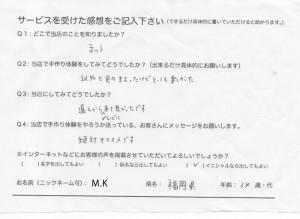 サービスを受けた感想をご記入下さい（できるだけ具体的に書いていただけると助かります。）
Q1：どこで当店のことを知りましたか？
ネット
Q2：当店で手作り体験をしてみてどうでしたか？（出来るだけ具体的にお願いします）
Q3：当店にしてみてどうでしたか？
Q4：当店で手作り体験をやろうか迷っている、お客さんにメッセージをお願いします。
絶対オススメです
※インターネットなどにお客様の声を掲載させていただいてよろしいでしょうか？
（ ）名字を出してもよい （ ）仮名なら出してもよい （✓）イニシャルなら出してもよい
お名前（ニックネーム可）：M.K 県名：福岡県 年齢：34 歳・代